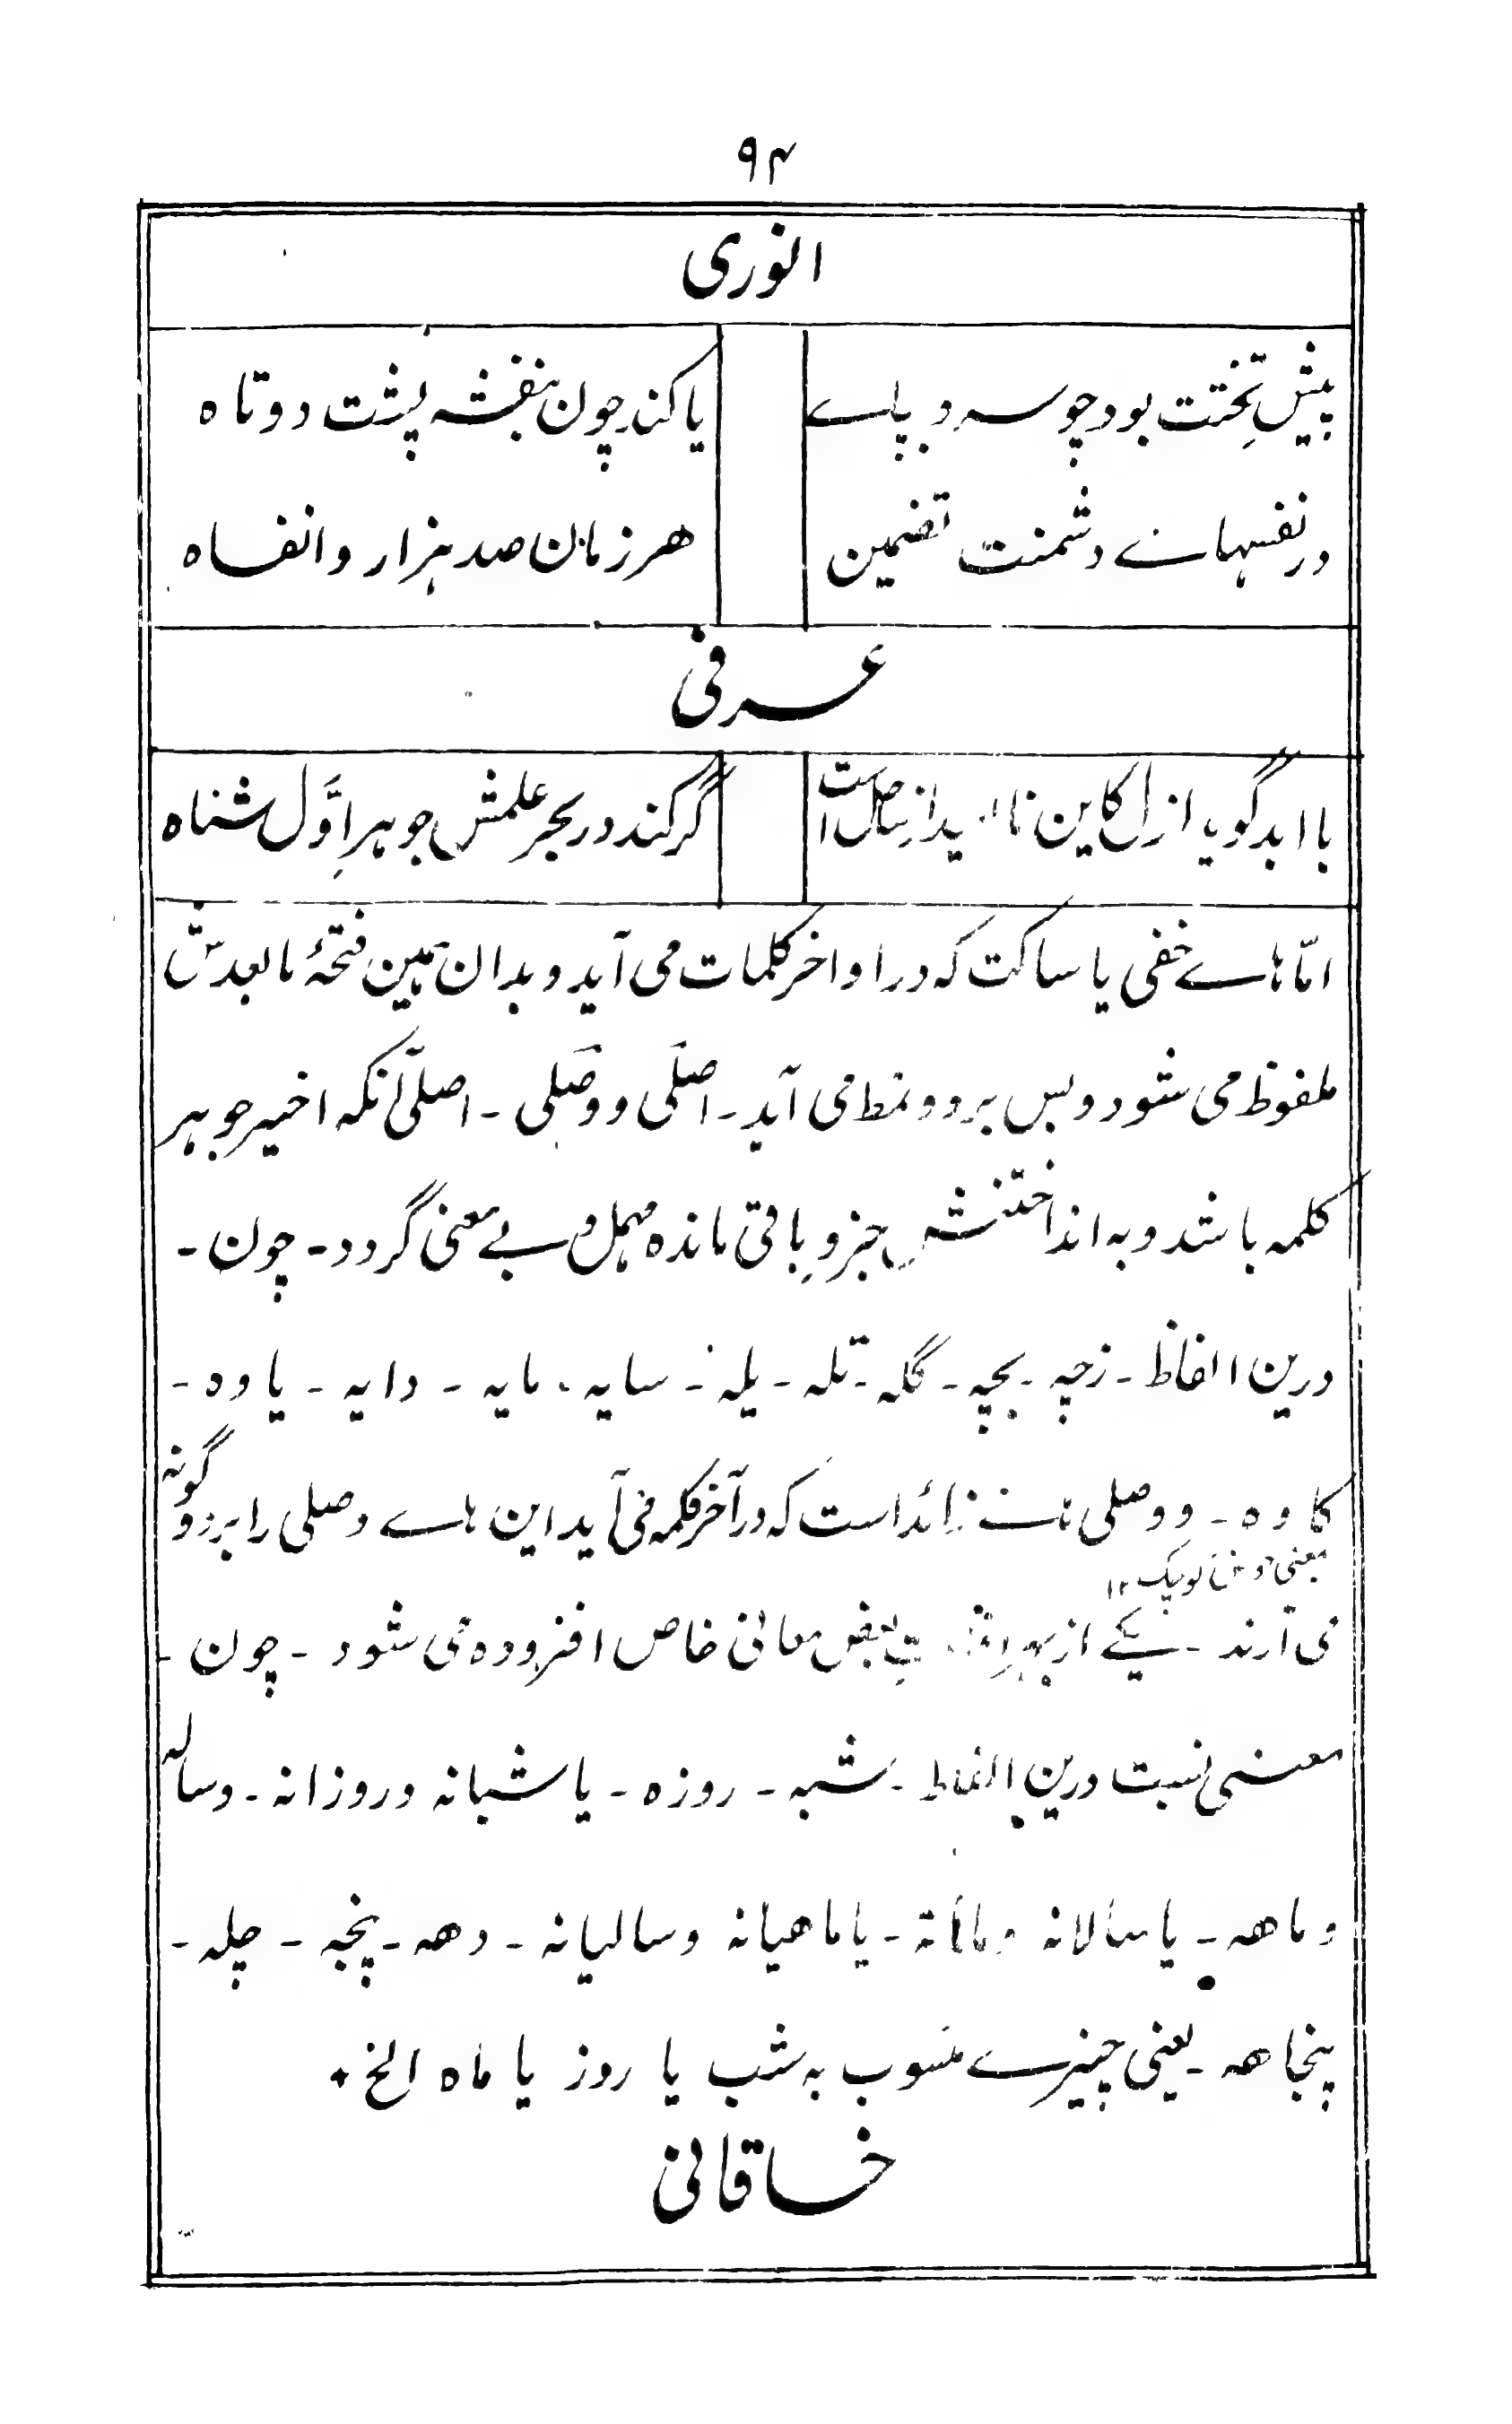 ۹۴
انوری
پیشِ تختت بود چو سرو بپاے یا کند چون بنفشہ پشت دوتاہ
در نفسہاے دشمنت تضمین هر زمان صد ہزار وانفساہ
عرفی
با ابد گوید ازل کاین تا ابد از ساحل است گر کند در بحرِ علمش جوہرِ اوَّل شناہ
امّا ہاے خفی یا ساکت کہ در اواخر کلمات می آید و بدان ہمین فتحۂ مابعدش
ملفوظ می شود و بس بر دو نمط می آید۔ اصلی و وصلی ۔ اصلی آنکہ اخیر جوہر
کلمہ باشد و بہ انداختنش جزوِ باقی ماندہ مہمل و بے معنی گردد ۔ چون ۔
درین الفاظ ۔ زچہ ۔ بچہ ۔ گلہ ۔ تلہ ۔ یلہ ۔ سایہ ۔ مایہ ۔ دایہ ۔ یاوہ ۔
کاوہ ۔ و وصلی ہاے زائد است کہ در آخر کلمہ می آید این ہاے وصلی را بر دو گونہ
می آرند ۔ یکے از بہر بعض معانی خاص افزودہ می شود ۔ چون ۔
معنی نسبت درین الفاظ ۔ شبہ ۔ روزہ ۔ یا شبانہ و روزانہ ۔ و سالہ
و ماهہ ۔ یا سالانہ و ماہانہ ۔ یا ماهیانہ و سالیانہ ۔ دهہ ۔ پنجہ ۔ چلہ ۔
پنجاهہ ۔ یعنی چیزے منسوب بہ شب یا روز یا ماہ الخ ٭
خاقانی